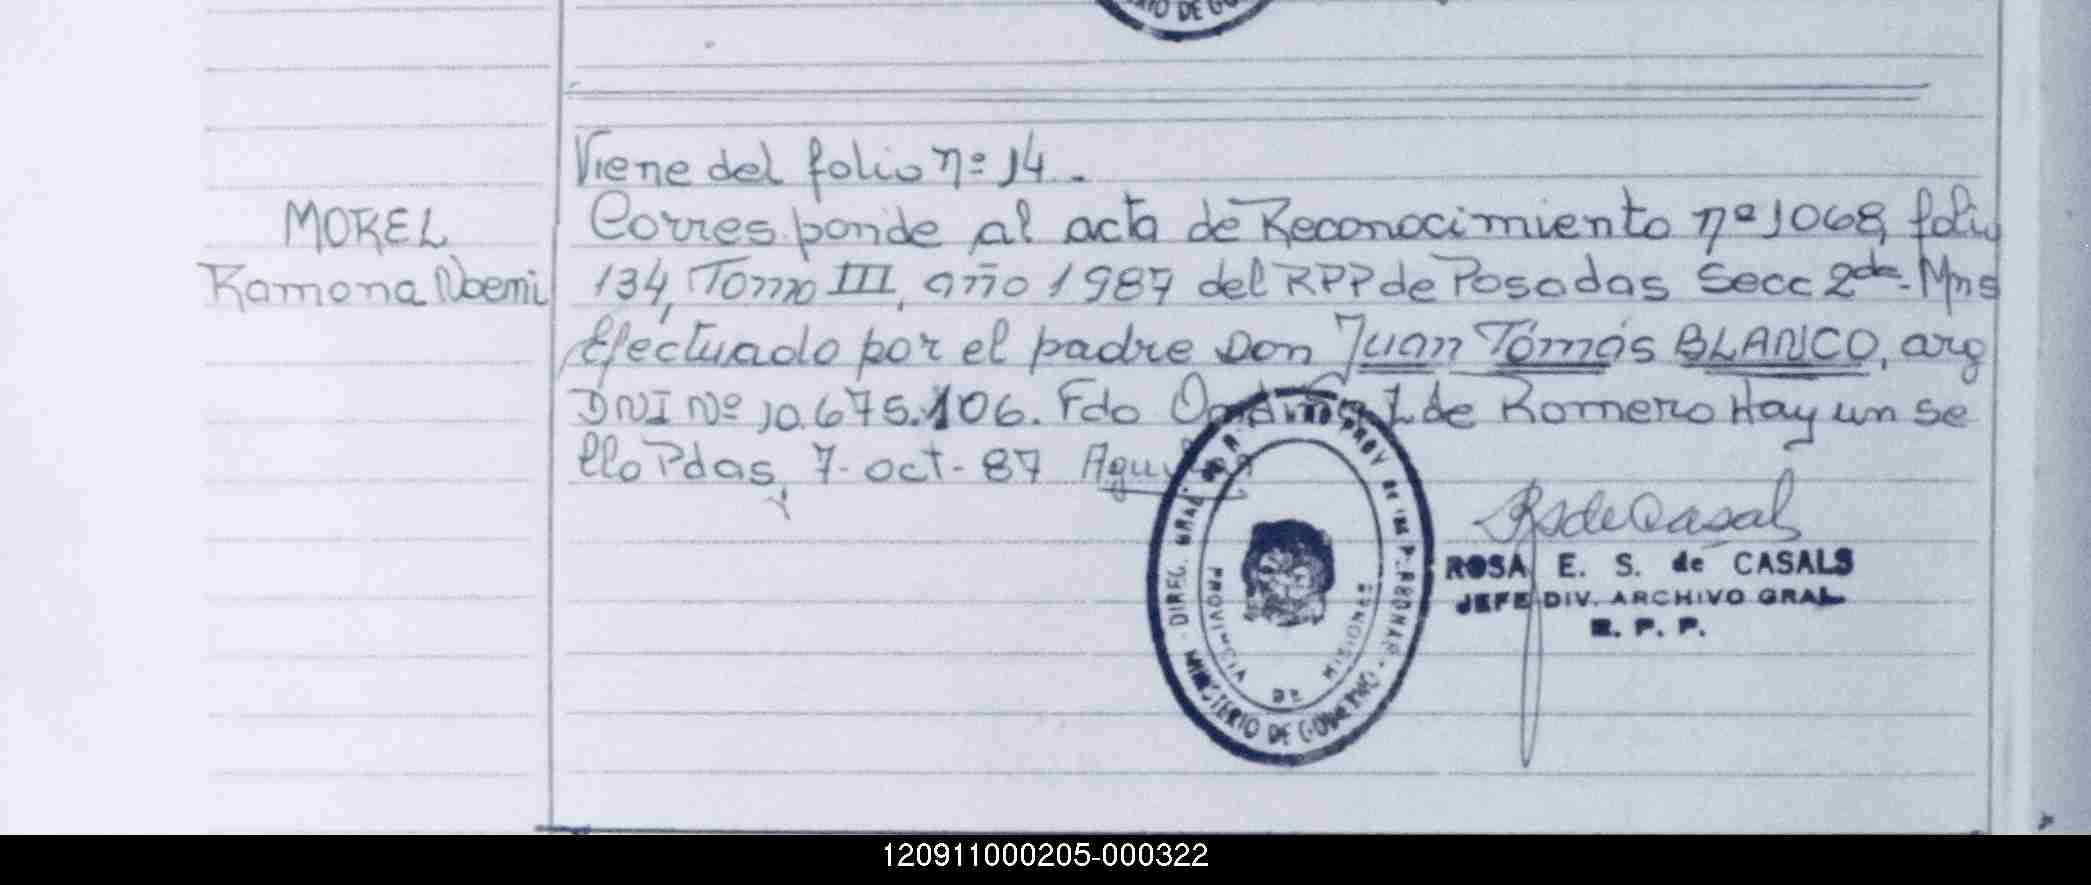 Viene del folio nº 14.
MOREL
Corresponde al acta de Reconocimiento nº 1068, folio
Ramona Noemi
134, Tomo III, año 1987 del RPP de Posadas Secc 2da- Mns
Efectuado por el padre Don Juan Tomás BLANCO, arg
DNI Nº 10.675.106. Fdo de Romero Hay un se
llo Pdas, 7-oct-87
RsdeCasals
ROSA E. S. de CASALS
JEFE DIV. ARCHIVO GRAL
R. P. P.
DIREC. GRAL. PROV. DE LAS PERSONAS
MINISTERIO DE GOBIERNO
PROVINCIA DE MISIONES
120911000205-000322